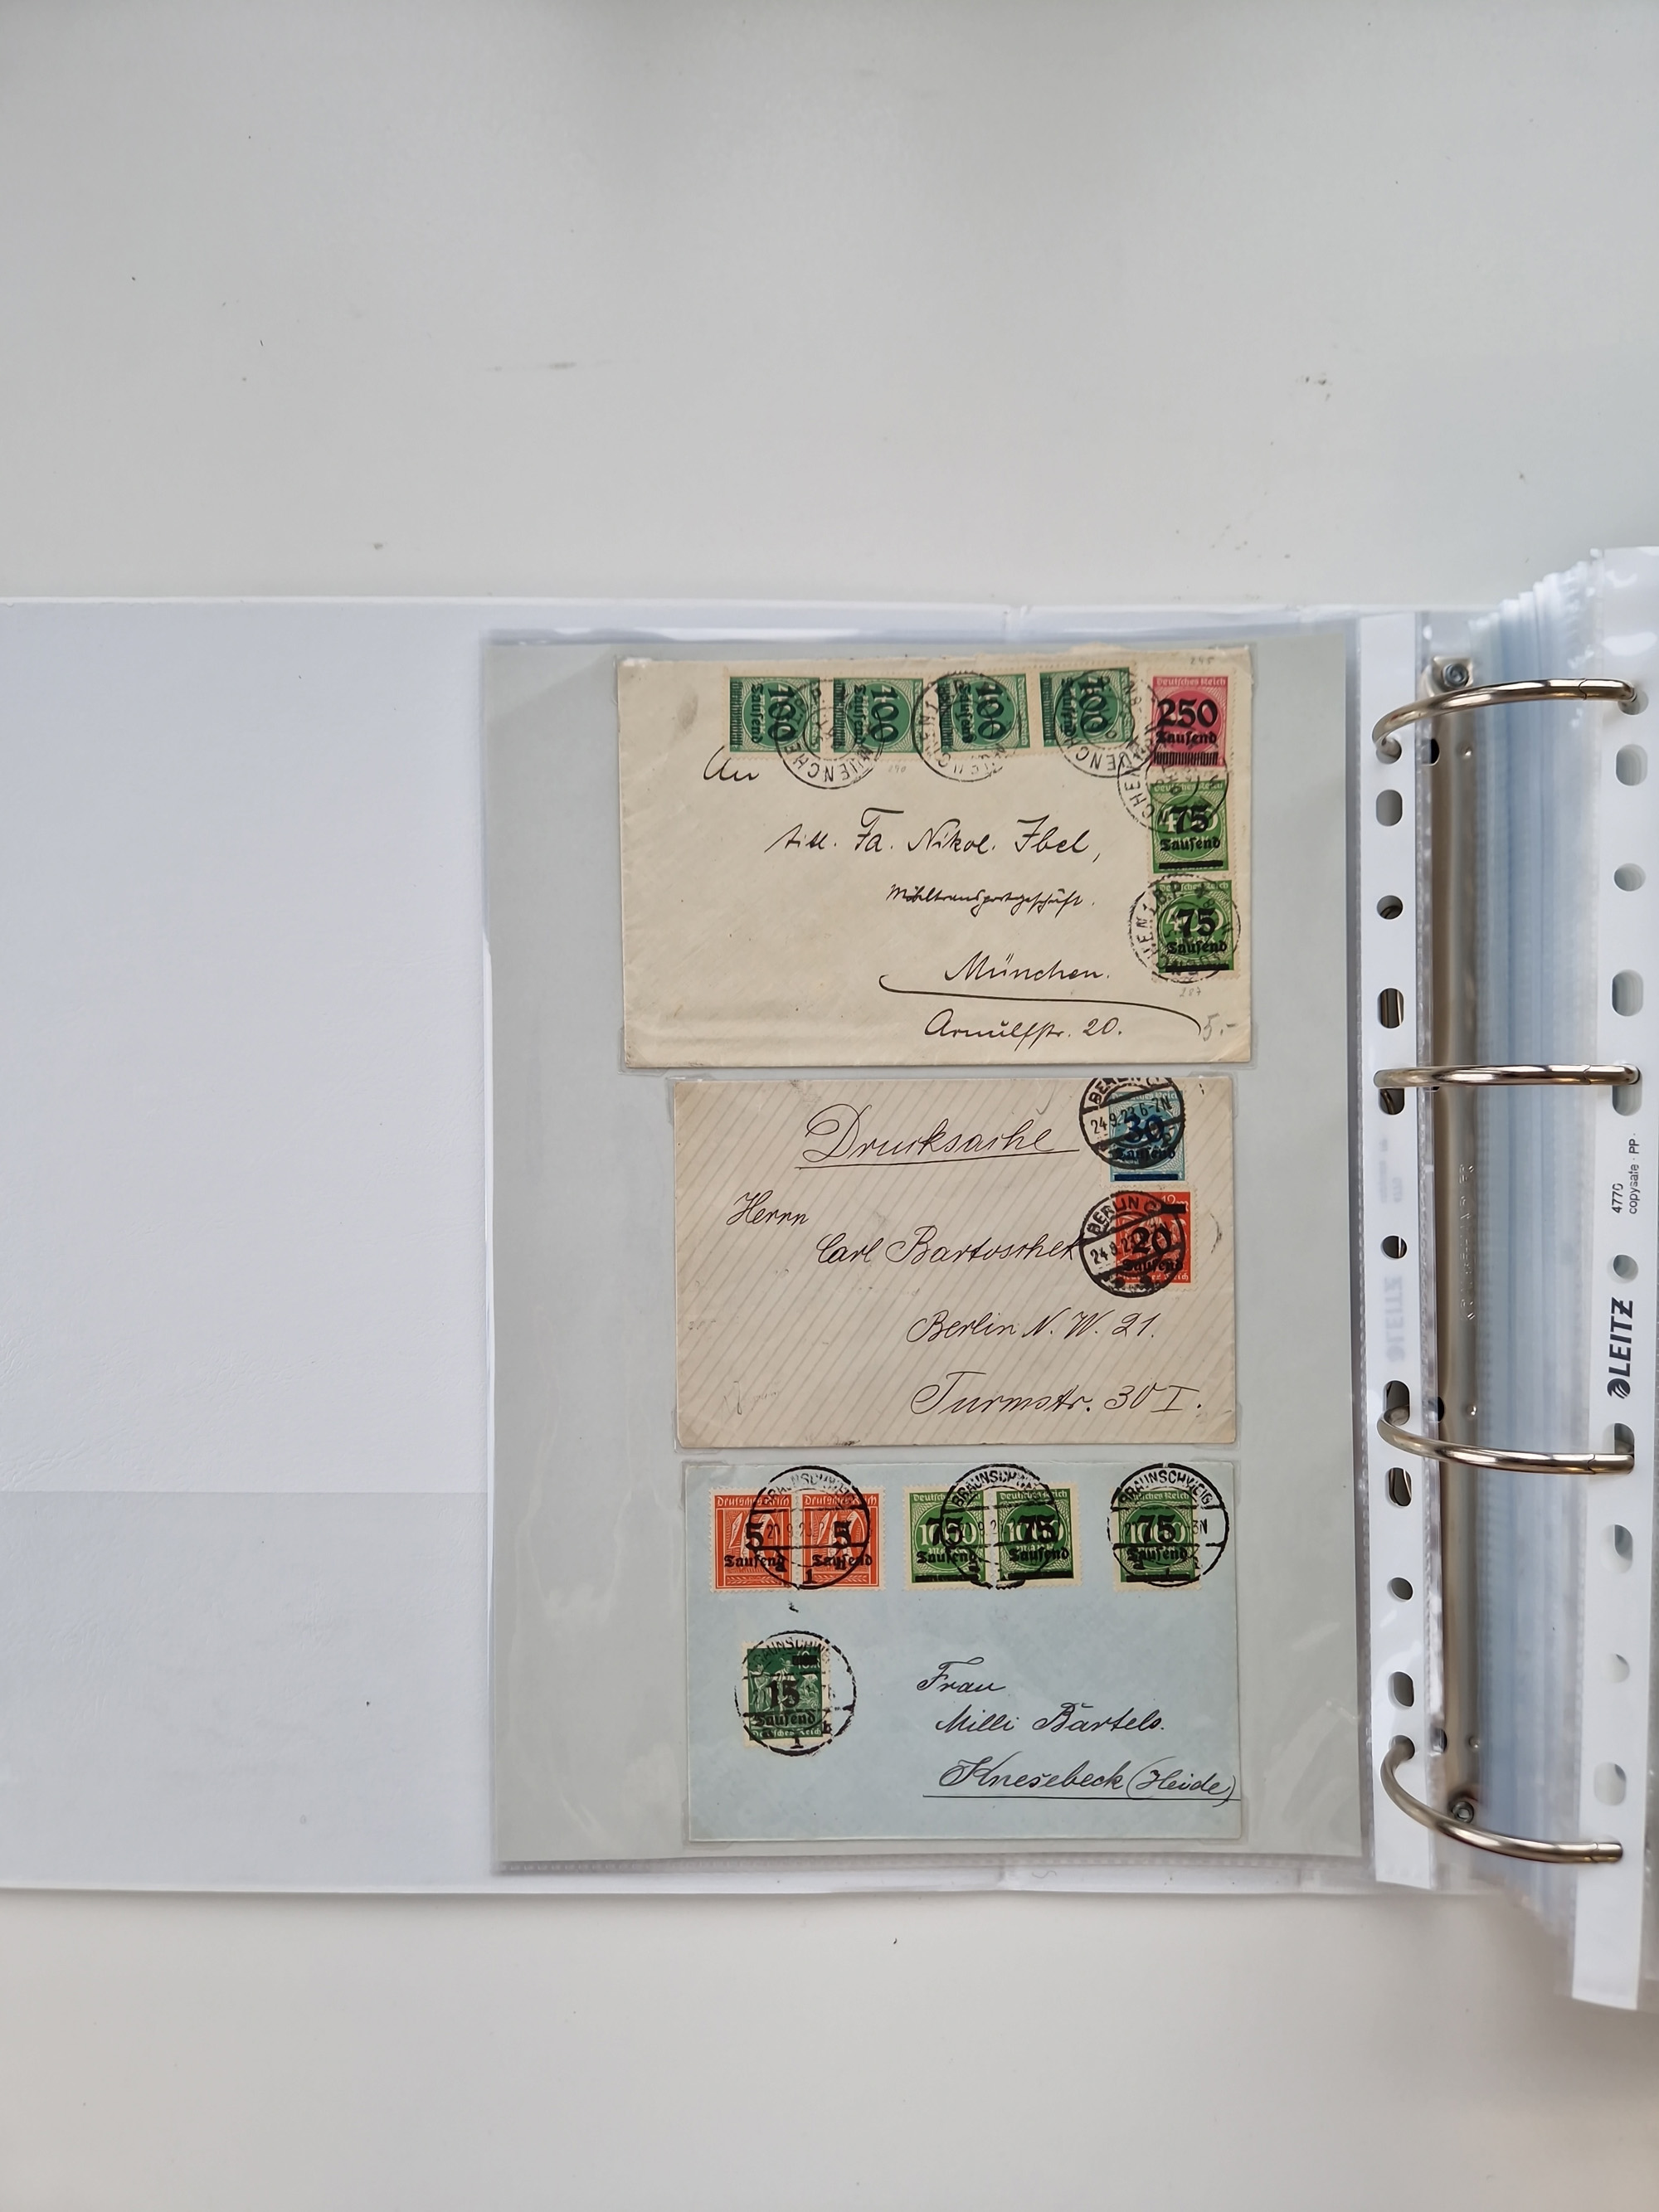 100
Tausend
100
Tausend
100
Tausend
100
Tausend
Deutsches Reich
250
Tausend
75
Tausend
75
Tausend
MUENCHEN
An
Fa. Nikol. Ibel,
Möbeltransportgeschäft.
München.
Arnulfstr. 20.
5.-
287
BERLIN C
24.9.23.6-7N
30
Tausend
Drucksache
BERLIN C
20
Tausend
Herrn
Carl Bartoschek
Berlin N. W. 21.
Turmstr. 30 I.
Deutsches Reich
5
Tausend
Deutsches Reich
5
Tausend
BRAUNSCHWEIG
21.9.23
1
75
Tausend
75
Tausend
BRAUNSCHWEIG
75
Tausend
BRAUNSCHWEIG
15
Tausend
Frau
Milli Bartels.
Knesebeck (Heide)
LEITZ
4770
copysafe · PP ·